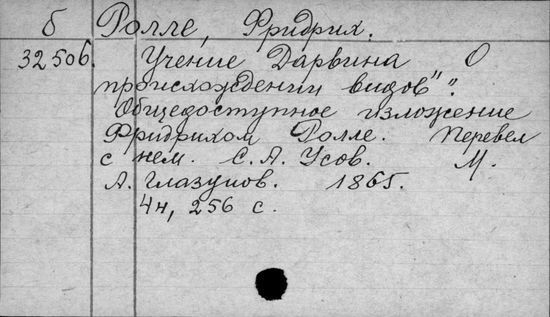 б Ролле, Фридрих.
32506. Учение Дарвина О
происхождении видов".
Общедоступное изложение
Фридрихом Ролле. Перевел
с нем. С. А. Усов. М.
А. Глазунов. 1865.
4н, 256 с.